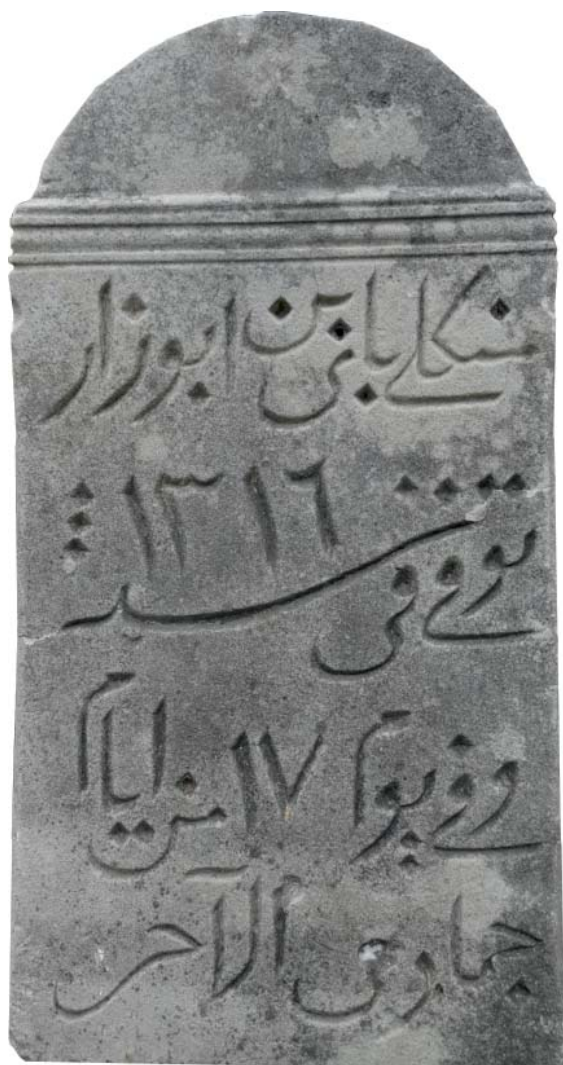 منكلي باني بن ابوزار
توفي في سنة ١٣١٦
وفي يوم ١٧ من ايام
جمادى الآخر